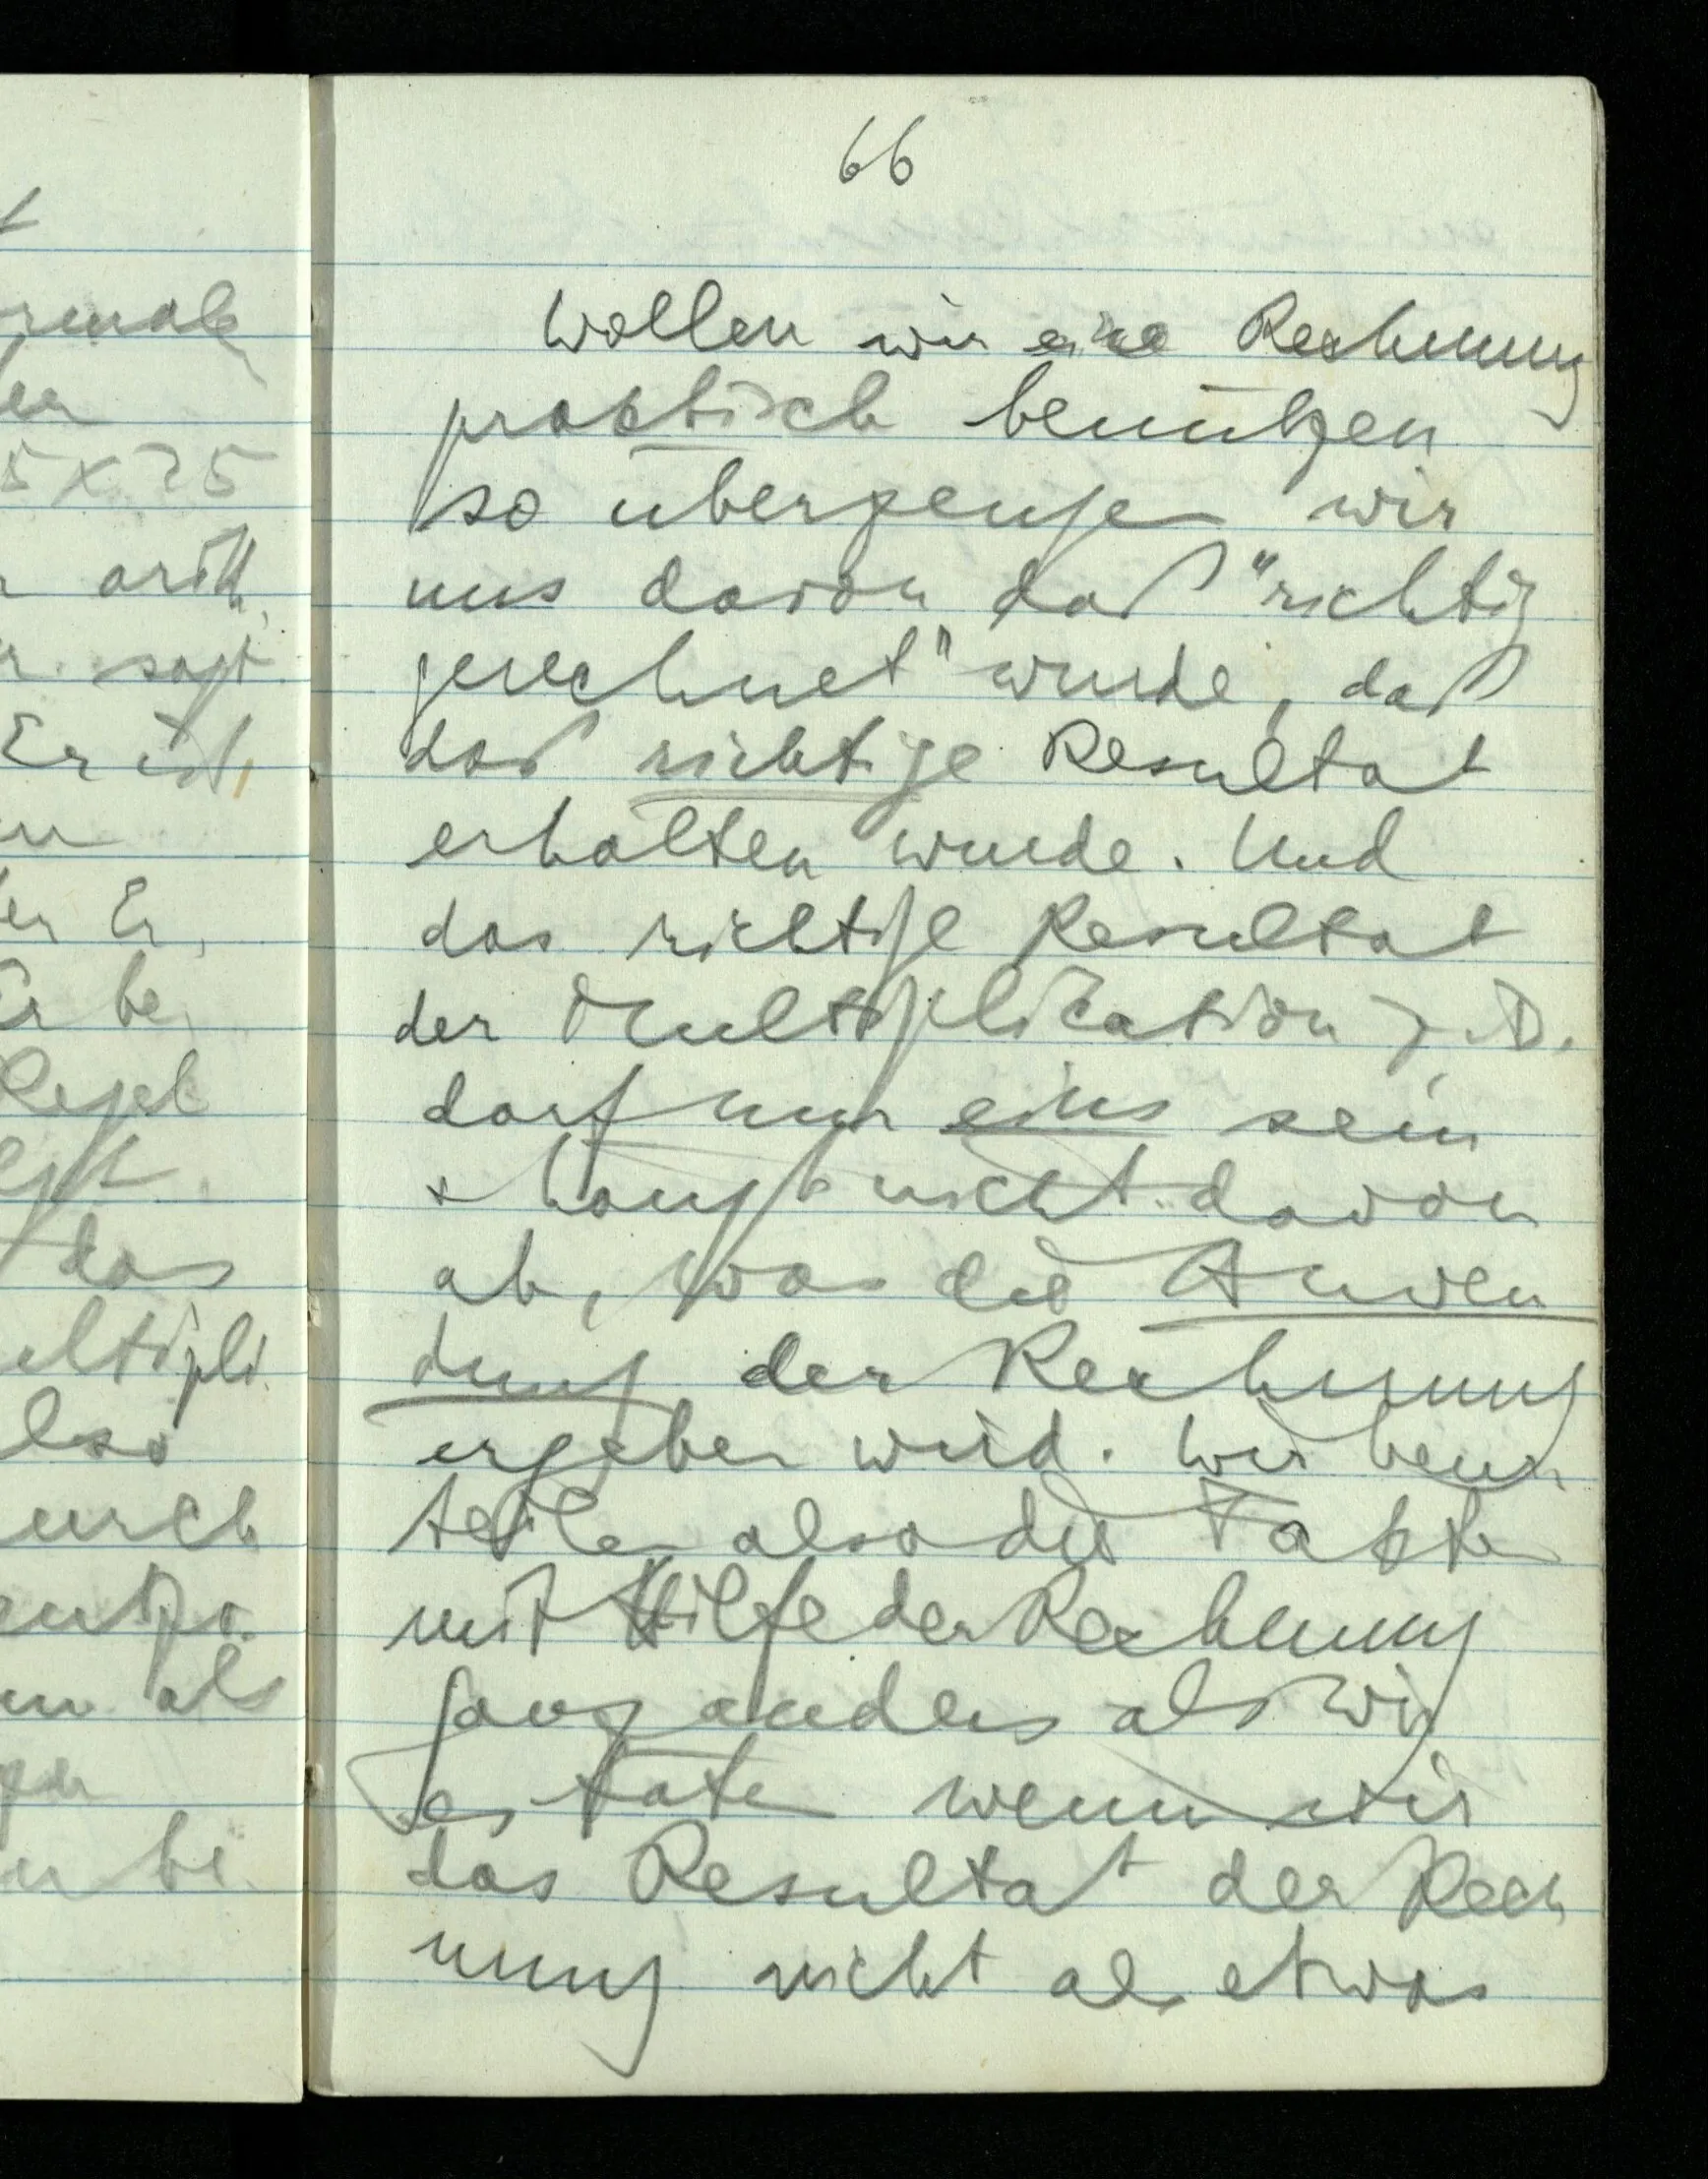 66
Wollen wir eine Rechnung
praktisch benützen
so überzeugen wir
uns davon daß "richtig
gerechnet" wurde, daß
das richtige Resultat
erhalten wurde. Und
das richtige Resultat
der Multiplication z.B.
darf nur eins sein
& hängt nicht davon
ab, was die Anwen
dung der Rechnung
ergeben wird. Wir beur
teilen also die Fakten
mit Hilfe der Rechnung
ganz anders als wir
es täten wenn wir
das Resultat der Rech
nung nicht als etwas
5 x 25
arith.
sagt
Er ist
er Er,
Er be
Regel
das
ultipli
also
urch
als
be